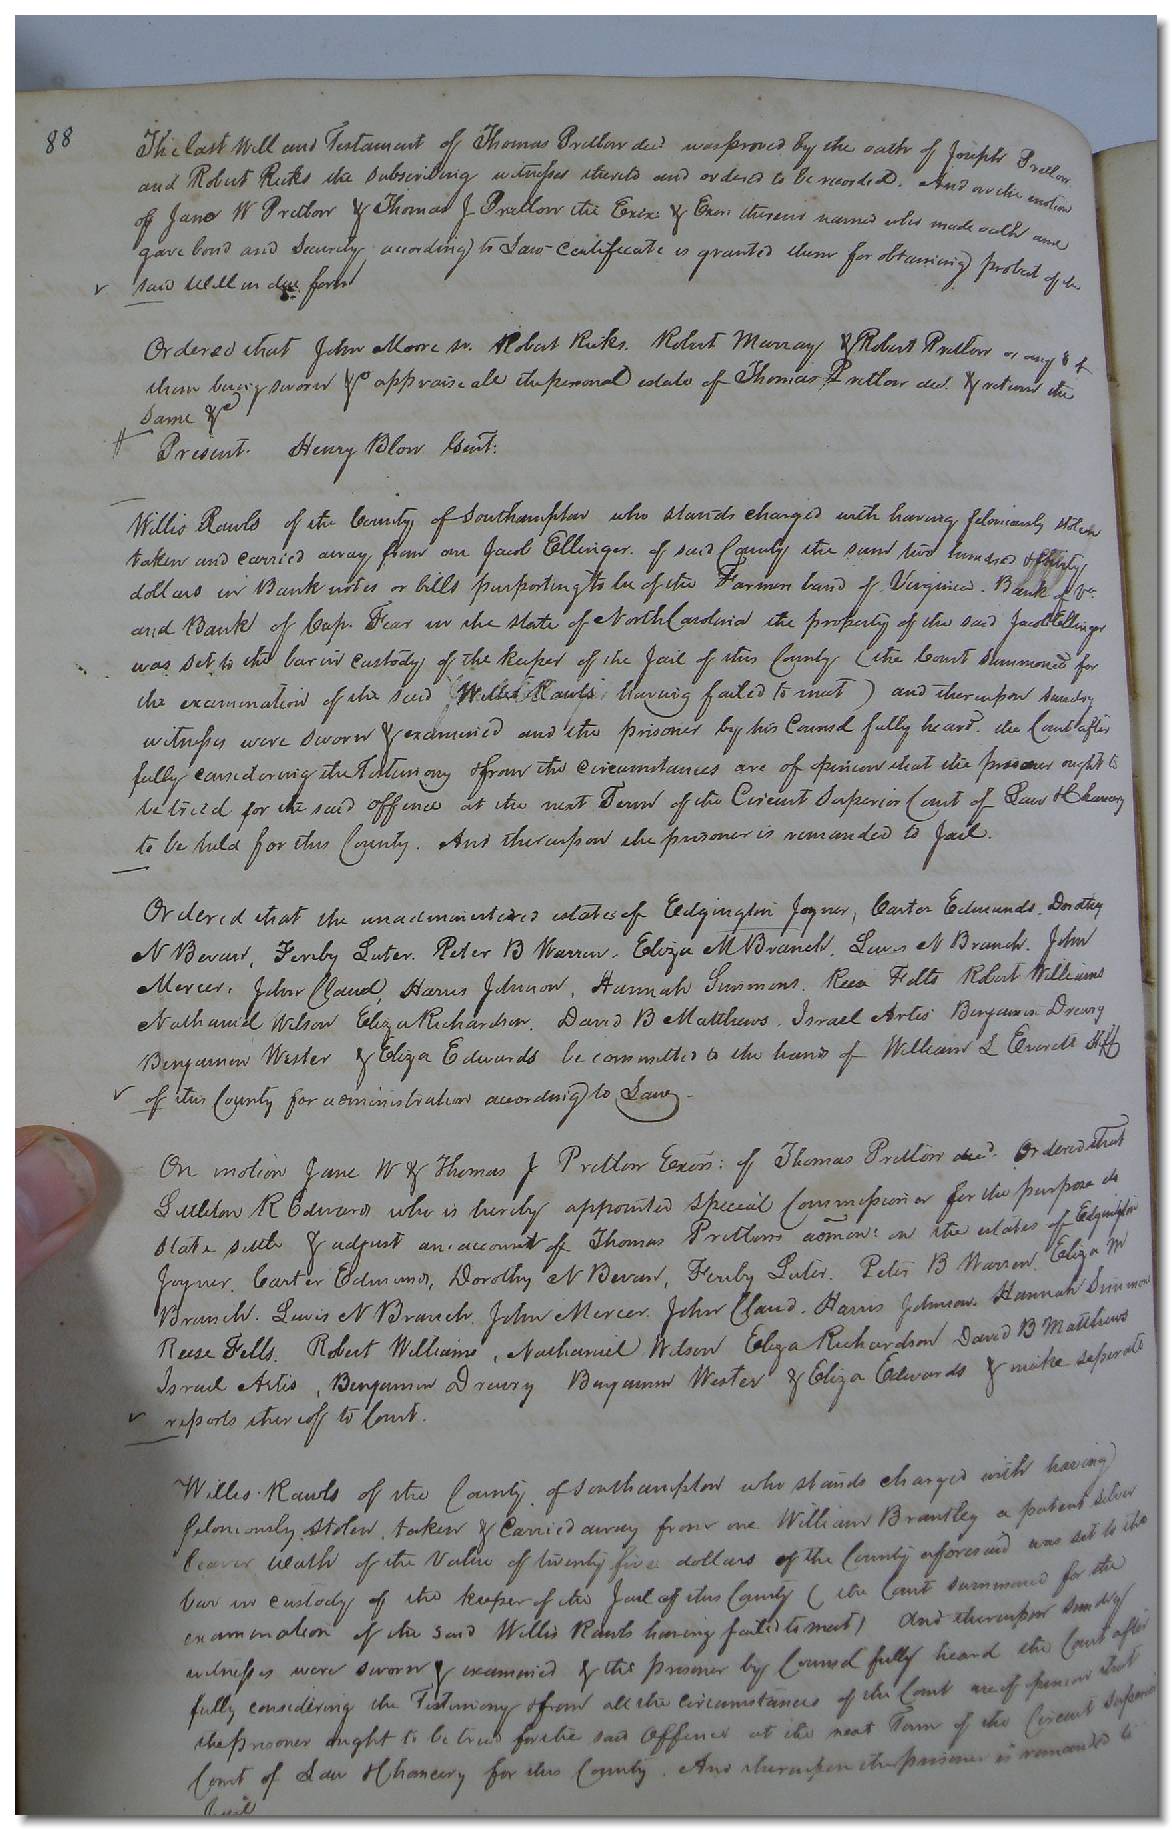 88
The last Will and Testament of Thomas Pretlow decd was proved by the oath of Joseph Pretlow
and Robert Ricks the subscribing witnesses thereto and ordered to be recorded. And on the motion
of Jane W Pretlow & Thomas J Pretlow the Exix & Exor therein named who made oath and
gave bond and Security according to Law certificate is granted them for obtaining probat of the
said Will in due form
Ordered that John Moore sr. Robert Ricks. Robert Murray & Robert Pretlow or any 3 of
them being sworn &c appraise all the personal estate of Thomas Pretlow decd. & return the
Same &c
Present. Henry Blow Gent:
Willis Rawls of the County of Southampton who stands charged with having feloniously stolen
taken and carried away from one Jacob Ellinger. of said County the sum two hundred &
dollars in Bank notes or bills purporting to be of the Farmers bank of Virginia. Bank of Va.
and Bank of Cape Fear in the state of North Carolina the property of the said Jacob Ellinger
was set to the bar in custody of the keeper of the Jail of this County (the Court summoned for
the examination of the said Willis Rawls having failed to meet) and thereupon sundry
witnesses were sworn & examined and the prisoner by his Counsel fully heard. the Court after
fully considering the Testimony & from the circumstances are of opinion that the prisoner ought to
be tried for the said offence at the next Term of the Circuit Superior Court of Law & Chancery
to be held for this County. And thereupon the prisoner is remanded to Jail.
Ordered that the unadministered estates of Edgington Joyner, Carter Edmunds, Dorothy
N Bevan, Feriby Luter. Peter B Warren. Eliza M Branch. Lewis N Branch. John
Mercer. John Claud, Harris Johnson, Hannah Simmons. Reese Felts Robert Williams
Nathaniel Wilson Eliza Richardson. David B Matthews. Israel Artis Benjamin Drewry
Benjamin Wester & Eliza Edwards be committed to the hands of William L Everett Shff
of this County for administration according to Law.
On motion Jane W & Thomas J Pretlow Exors: of Thomas Pretlow decd. Ordered that
Littleton R Edwards who is hereby appointed special Commissioner for the purpose do
state settle & adjust an account of Thomas Pretlows admon: on the estates of Edgington
Joyner. Carter Edmunds, Dorothy N Bevan, Feriby Luter. Peter B Warren. Eliza M
Branch. Lewis N Branch. John Mercer. John Claud. Harris Johnson. Hannah Simmons
Reese Felts. Robert Williams, Nathaniel Wilson Eliza Richardson David B Matthews
Israel Artis, Benjamin Drewry Benjamin Wester & Eliza Edwards & make seperate
reports thereof to Court.
Willis Rawls of the County of Southampton who stands charged with having
feloniously stolen, taken & carried away from one William Brantley a patent silver
leaver wath of the Value of twenty five dollars of the County aforesaid was set to the
bar in custody of the keeper of the Jail of this County (the Court summoned for the
examination of the said Willis Rawls having failed to meet) and thereupon sundry
witnesses were sworn & examined & the prisoner by Counsel fully heard the Court after
fully considering the Testimony & from all the circumstances of the Court are of opinion that
the prisoner ought to be tried for the said Offence at the next Term of the Circuit Superior
Court of Law & Chancery for this County. And thereupon the prisoner is remanded to
Jail